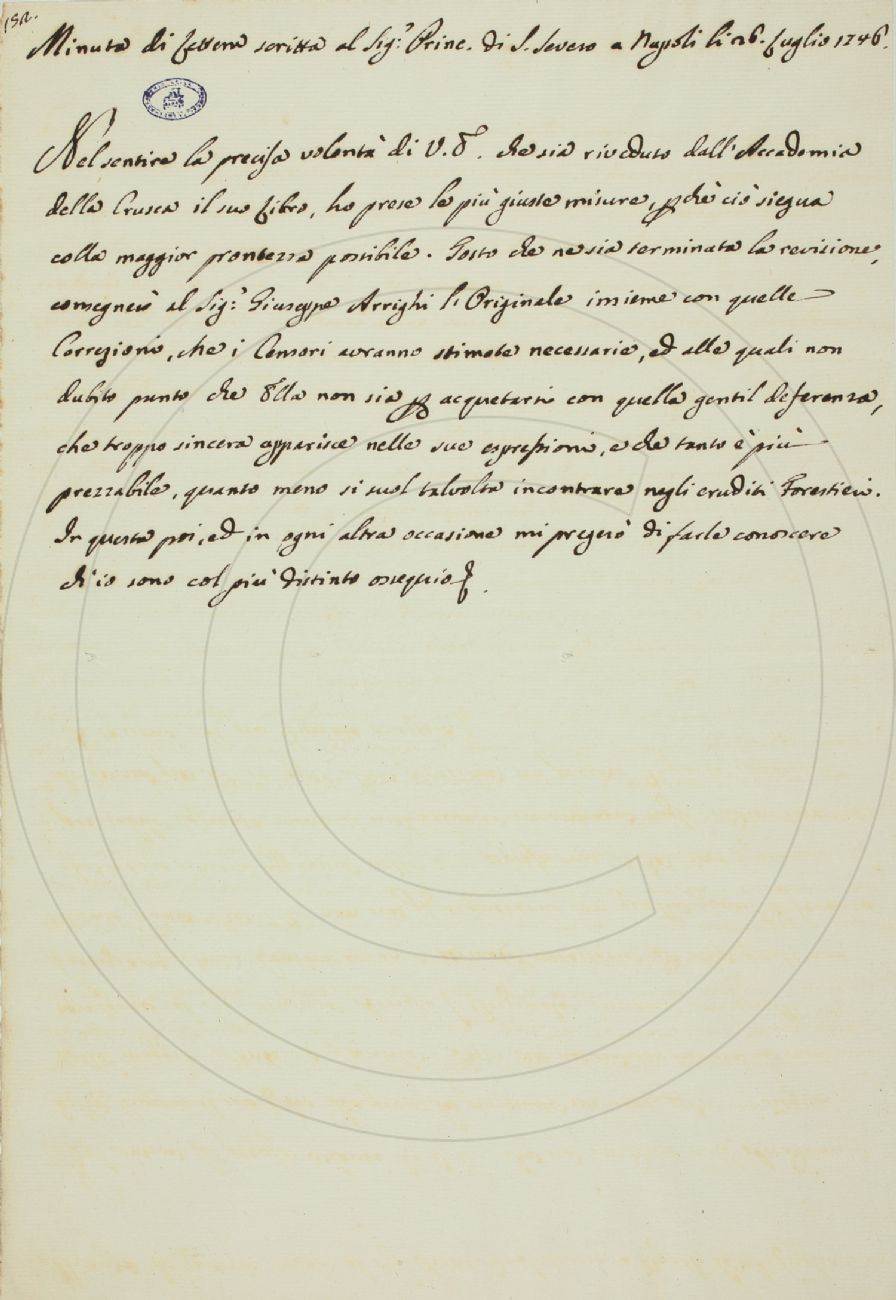 152.
Minuta di Lettera scritta al Sig.r Princ. di S. Severo a Napoli li 26. Luglio 1746.
Nel sentire la precisa volontà di V. E. che sia riveduto dall'Accademia
della Crusca il suo Libro, ho prese le più giuste misure, pchè ciò siegua
colla maggior prontezza possibile. Tosto che ne sia terminata la revisione,
consegnerò al Sig.r Giuseppe Arrighi l'Originale insieme con quelle
Correzioni, che i Censori avranno stimate necessarie, ed alle quali non
dubito punto che Ella non sia p acquetarsi con quella gentil deferenza,
che troppo sincera apparisce nelle sue espressioni, e che tanto è più
prezzabile, quanto meno si suol talvolta incontrare negli eruditi Forestieri.
In questa poi, ed in ogni altra occasione mi pregerò di farle conoscere
ch'io sono col più distinto ossequio